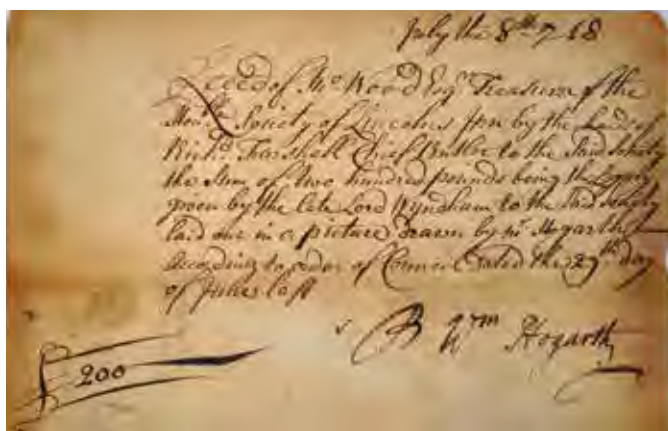 July the 8th 1748
Recd of Mr Wood Esqr Treasurer of the
Honble Society of Lincolns Inn by the hands of
Richd Farshall Chief Butler to the Said Society
the Sum of two hundred pounds being the Legacy
given by the late Lord Wyndham to the Said Society
laid out in a picture drawn by Mr Hogarth
According to order of Council dated the 27th day
of June last
By Wm Hogarth
£ 200